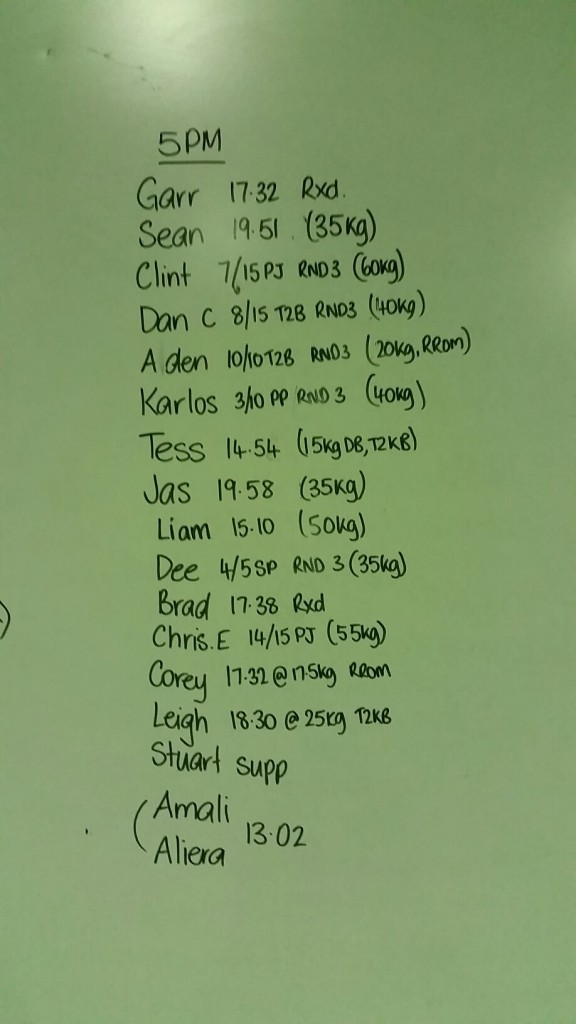 5PM
Garr 17.32 Rxd.
Sean 19.51 (35kg)
Clint 7/15 PJ RND 3 (60kg)
Dan C 8/15 T2B RND3 (40kg)
Aden 10/10 T2B RND3 (20kg, RROM)
Karlos 3/10 PP RND 3 (40kg)
Tess 14.54 (15kg DB, T2KB)
Jas 19.58 (35kg)
Liam 15.10 (50kg)
Dee 4/5 SP RND 3 (35kg)
Brad 17.38 Rxd
Chris.E 14/15 PJ (55kg)
Corey 17.32 @ 17.5kg RROM
Leigh 18.30 @ 25kg T2KB
Stuart supp
(Amali
Aliera 13.02